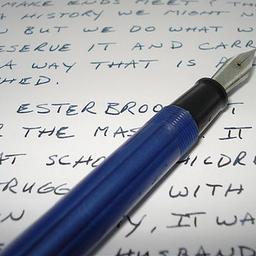 MAKE ENDS MEET? TH
HISTORY WE MIGHT N
BUT WE DO WHAT W
ESERVE IT AND CARR
A WAY THAT IS A
HED.
ESTERBROO T
THE MAS IT
AT SCHO HILDR
RUGG WITH
N Y, IT WA
HUSBAND